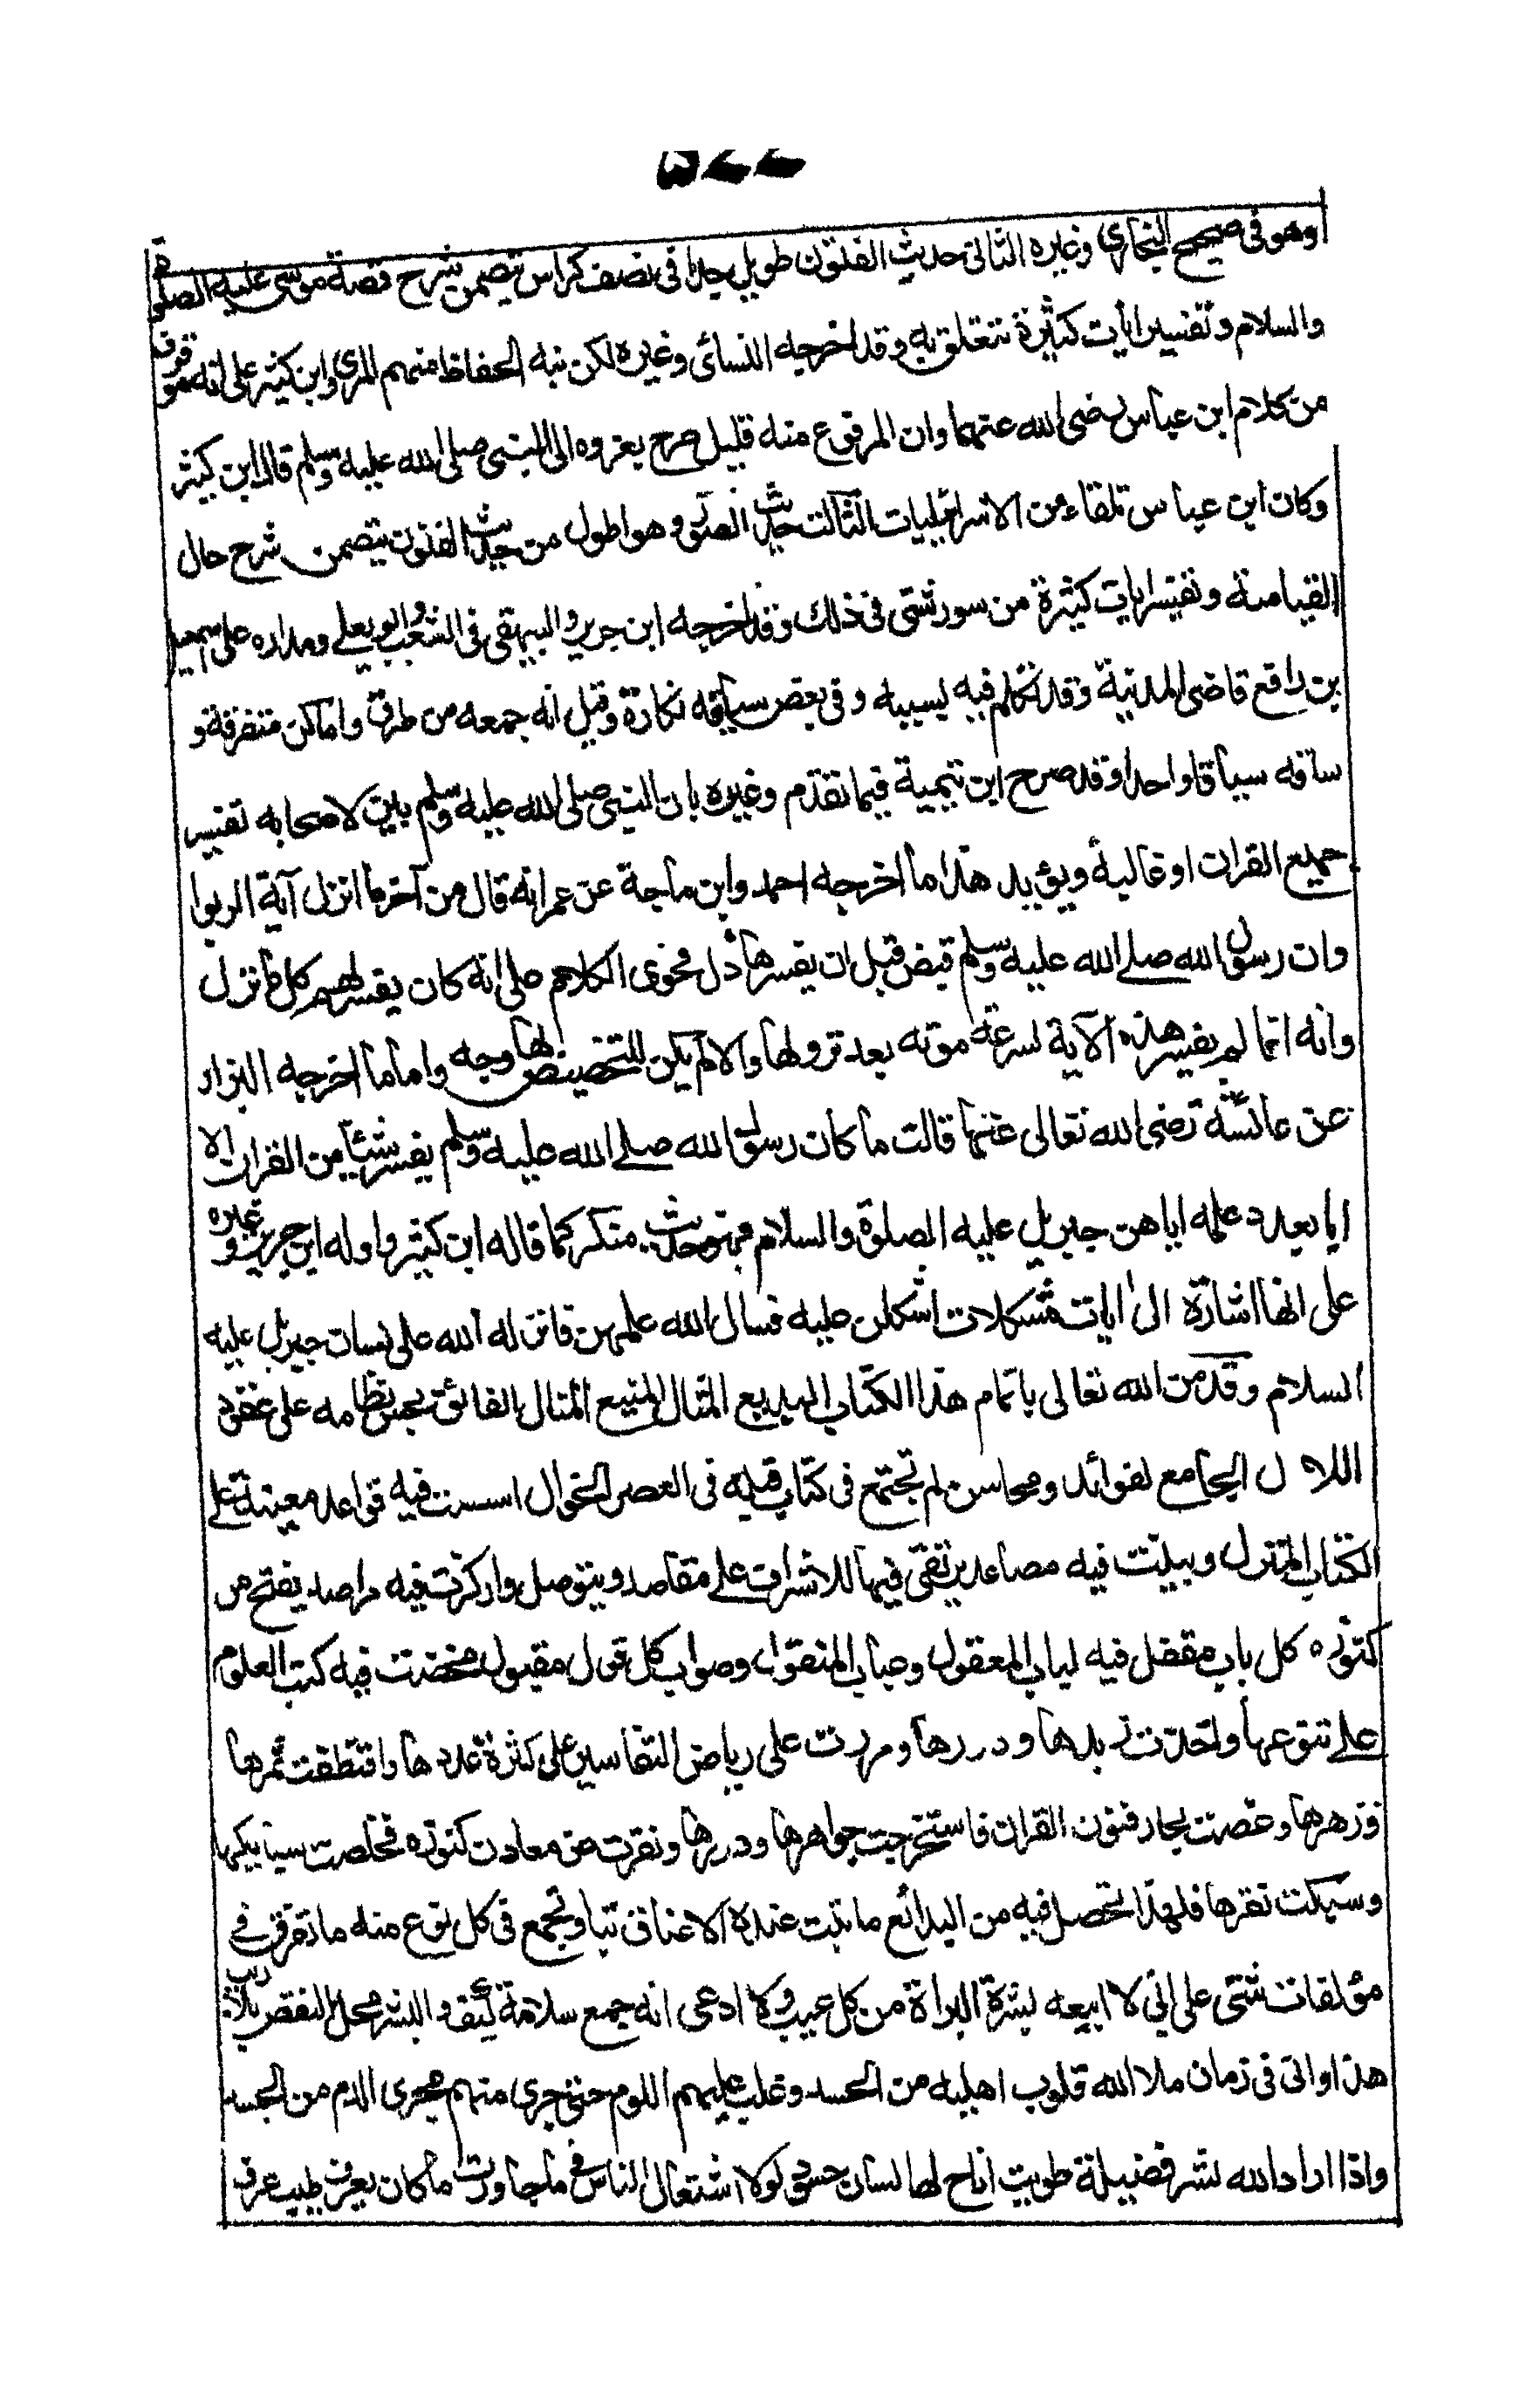 ٥٧٧
وهو فى صحيح البخارى وغيره الثانى حديث الفتون طويل جدا فى نصف كراس يتضمن شرح قصة موسى عليه الصلوة
والسلام وتفسير ايات كثيرة تتعلق به وقد اخرجه النسائى وغيره لكن نبه الحفاظ منهم المزى وابن كثير على انه موقوف
من كلام ابن عباس رضى الله عنهما وان المرفوع منه قليل صرح بعزوه الى النبى صلى الله عليه وسلم قال ابن كثير
وكان ابن عباس تلقاه من الاسرائيليات الثالث حديث الصور وهو اطول من حديث الفتون يتضمن شرح حال
القيامة وتفسير ايات كثيرة من سور شتى فى ذلك وقد اخرجه ابن جرير والبيهقى فى الشعب وابو يعلى ومداره على اسمعيل
بن رافع قاضى المدينة وقد تكلم فيه بسببه وفى بعض سياقه نكارة وقيل انه جمعه من طرق واماكن متفرقة و
ساقه سياقا واحدا وقد صرح ابن تيمية فيما تقدم وغيره بان النبى صلى الله عليه وسلم بين لاصحابه تفسير
جميع القران او غالبه ويؤيد هذا ما اخرجه احمد وابن ماجة عن عمر انه قال من آخر ما انزل آية الربوا
وان رسول الله صلے الله عليه وسلم قبض قبل ان يفسرها دل فحوى الكلام على انه كان يفسر لهم كل ما نزل
وانه انما لم يفسر هذه الآية لسرعة موته بعد نزولها والا لم يكن للتخصيص بها وجه واما ما اخرجه البزار
عن عائشة رضى الله تعالى عنها قالت ما كان رسول الله صلے الله عليه وسلم يفسر شيئا من القران الا
ايا بعدد علمه اياهن جبريل عليه الصلوة والسلام فهو حديث منكر كما قاله ابن كثير واوله ابن جرير وغيره
على انها اشارة الى ايات مشكلات اشكلن عليه فسال الله علمهن فانزله الله على لسان جبريل عليه
السلام وقد من الله تعالى باتمام هذا الكتاب البديع المثال المنيع المنال الفائق بحسن نظامه على عقود
اللال الجامع لفوائد ومحاسن لم تجتمع فى كتاب قبله فى العصر الخوال اسست فيه قواعد معينة على
الكتاب المنزل وبينت فيه مصاعد يرتقى فيها للاشراف على مقاصد ويتوصل واركزت فيه مراصد يفتح من
كنوزه كل باب مقفل فيه لباب المعقول وعباب المنقول وصواب كل قول مقبول مخضت فيه كتب العلوم
على تنوعها واخذت زبدها ودررها ومررت على رياض التفاسير على كثرة عددها واقتطفت ثمرها
وزهرها وغصت بحار فنون القران فاستخرجت جواهرها ودررها ونقرت عن معادن كنوزه فخلصت سبايكها
وسبكت نقرها فلهذا تحصل فيه من البدائع ما تبت عنده الاعناق بتا وتجمع فى كل نوع منه ما تفرق فى
مؤلفات شتى على انى لا ابيعه بشرط البراءة من كل عيب ولا ادعى انه جمع سلامة كيف والبشر محل النقص بلا ريب
هذا وانى فى زمان ملا الله قلوب اهليه من الحسد وغلب عليهم اللوم حتى جرى منهم مجرى الدم من الجسد
واذا اراد الله نشر فضيلة طويت اتاح لها لسان حسود لولا اشتعال النار فيما جاورت ما كان يعرف طيب عرف